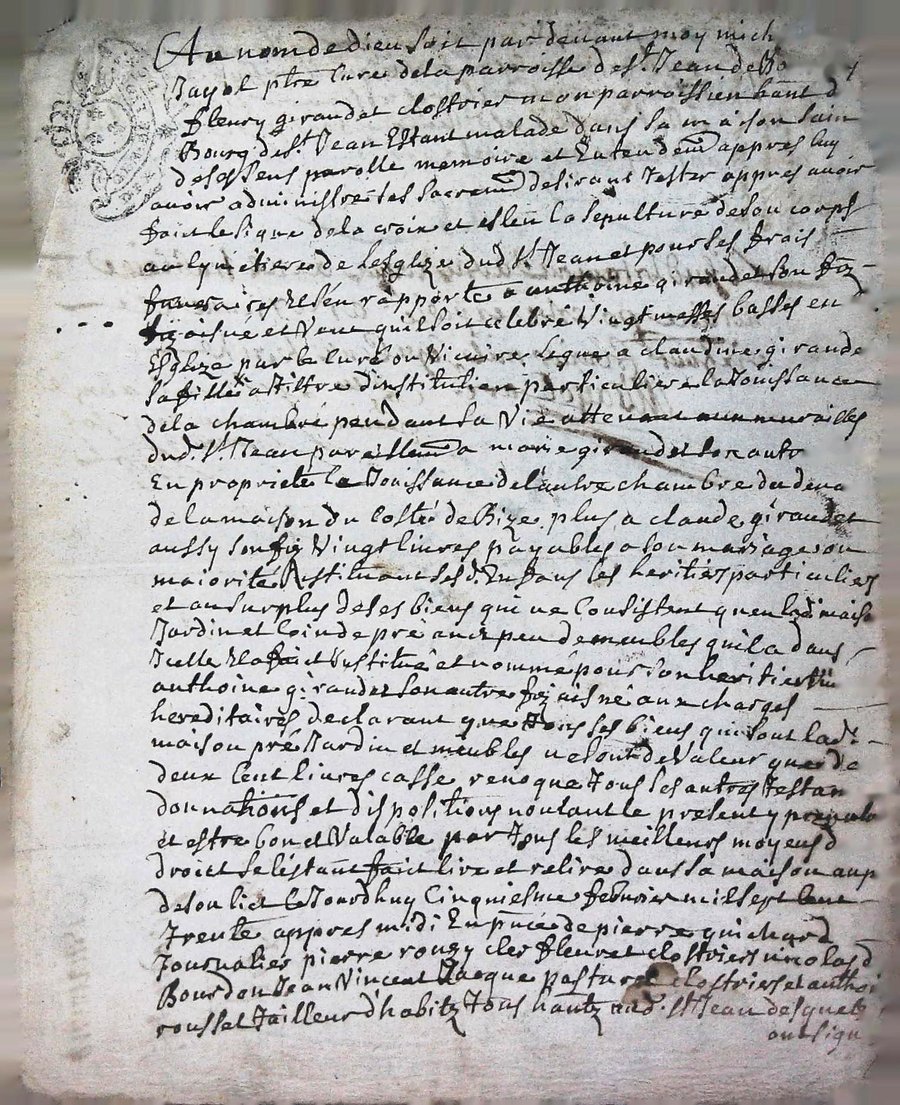 Au nom de dieu soit par devant moy mich
Jayol ptre Curé de la parroisse de st Jean de Bo
fleury giraudet clostrier mon parroissien hant d
Bourg de st Jean Estant malade dans sa maison sain
de ses sens parolle memoire et Entendemt appres luy
avoir administré les sacremt desirant Tester appres avoir
fait le signe de la croix et esleu la sepulture de son corps
au cymetiere de l'esglize dud st Jean et pour ses frais
funeraires Il s'en rapporte a anthoine giraudet son fiz
aisne et veut quil soit celebré Vingt messes basses en
Esglize par le curé ou Vicaire legue a claudine giraude
sa fille a tiltre d'institution particuliere la Jouissance
de la chambre pendant sa Vie attenant aux murailles
dud. st Jean pareillemt a marie giraudet son autr
En proprieté la Jouissance de l'autre chambre du deva
de la maison du Costé de Bize, plus a claude giraudet
aussy son fiz Vingt livres payables a son mariage ou
maiorité Instituant ses d. Enfans ses heritiers particuliers
et au surplus de ses biens qui ne Consistent qu'en lad. maiso
Jardin et Coin de pré aux peu de meubles quil a dans
Icelle Il a fait Institué et nommé pour son heritier
anthoine giraudet son autre fiz aisné aux charges
hereditaires declarant que Tous ses biens qui sont lad.
maison pré Jardin et meubles ne sont de Valeur que de
deux Cent livres casse revoque Tous les autres Testam
donnations et dispositions voulant le present y prevalo
et estre bon et Valable par Tous les meilleurs moyens d
droit se l'estant fait lire et relire dans sa maison aup
de son lict Ce Jourdhuy Cinquiesme febvrier mil sept Cent
Trente appres midi En pnce de pierre guichard
Journalier pierre rougy cler fleuret clostriers nicolas d
Bourdon Jean Vincent Jacque pasture clostriers et anthoi
rousset Tailleur d'habitz Tous hantz aud. st Jean desquelz
ont sign